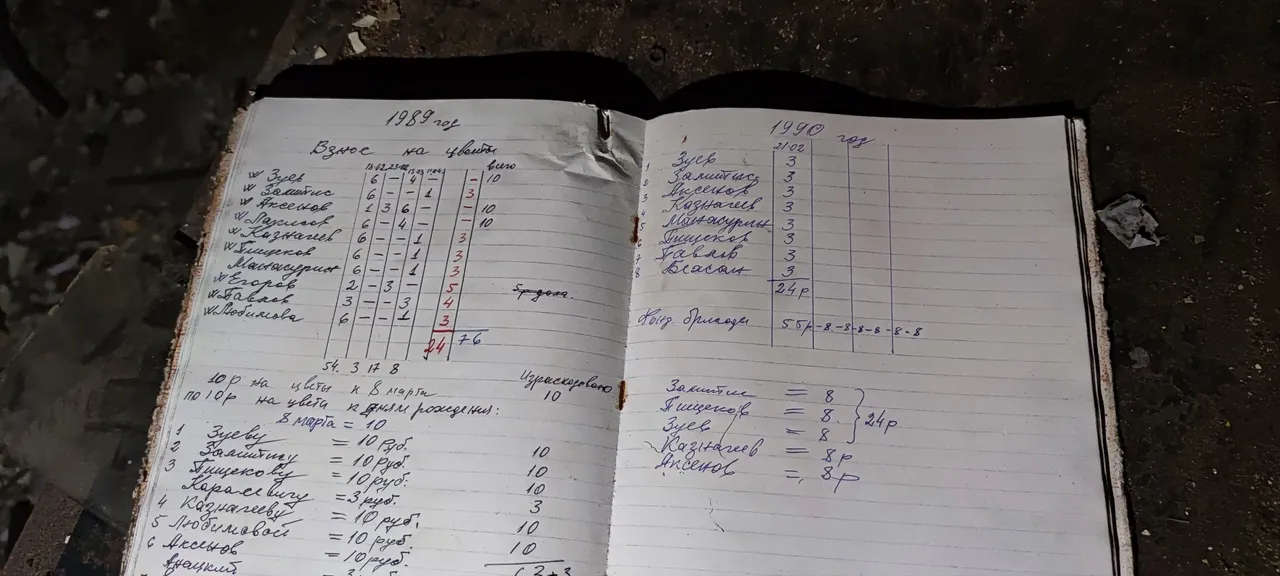 1989 год
Взнос на цветы
13.02 23.02 всего
W Зуев 6 - 4 - - 10
W Залитис 6 - - 1 3
W Аксенов 1 3 6 - - 10
W 6 - 4 - - 10
W Казначев 6 - - 1 3
W Пищеков 6 - - 1 3
Манасурин 6 - - 1 3
W Егоров 2 - 3 - 5
W Павлов 3 - - 3 4
W Любимова 6 - - 1 3
24 76
54. 3 17 8
Израсходовано
10р на цветы к 8 марта 10
по 10р на цветы к дням рождения:
8 марта = 10
1 Зуеву = 10 руб. 10
2 Залитису = 10 руб. 10
3 Пищекову = 10 руб. 10
Каралевичу = 3 руб. 3
4 Казначееву = 10 руб. 10
5 Любимовой = 10 руб. 10
6 Аксенов = 10 руб.
1990 год
21.02
1 Зуев 3
2 Залитис 3
3 Аксенов 3
4 Казначев 3
5 Манасурин 3
6 Пищеков 3
7 Павлов 3
8 3
24р
Фонд бригады 55р-8-8-8-8-8-8
Залитис = 8
Пищеков = 8.
Зуев = 8
24р
Казначев = 8р
Аксенов = 8р